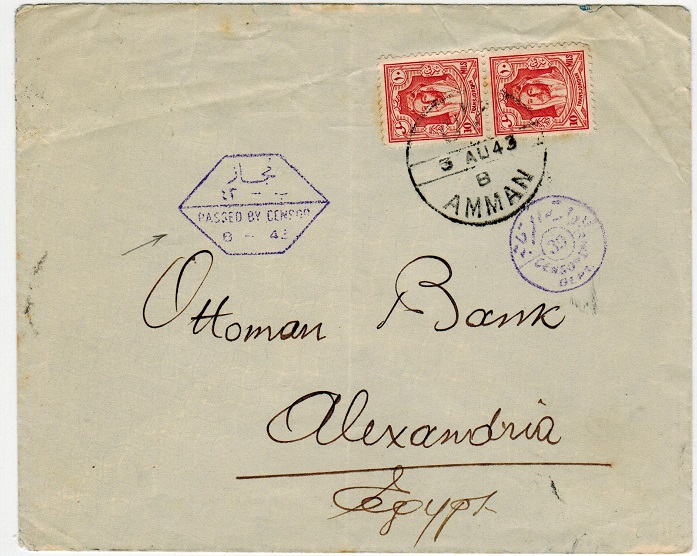 3 AU 43
B
AMMAN
مجاز
PASSED BY CENSOR
8 - 43
39
CENSOR
DEPT.
Ottoman Bank
Alexandria
Egypt